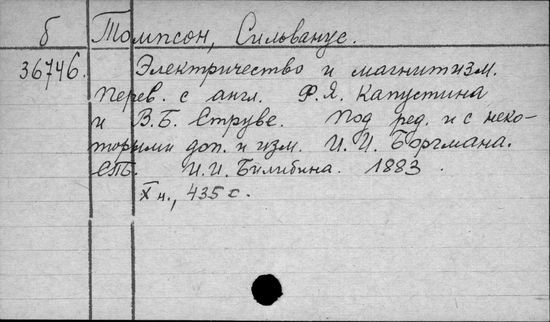 б Томпсон, Сильванус.
36746. Электричество и магнитизм.
Перев. с англ. Ф.Я. Капустина
и В.Б. Струве. Под ред. и с неко-
торыми доп. и изм. И.И. Боргмана.
СПБ. И.И. Билибина. 1883.
X н., 435 с.